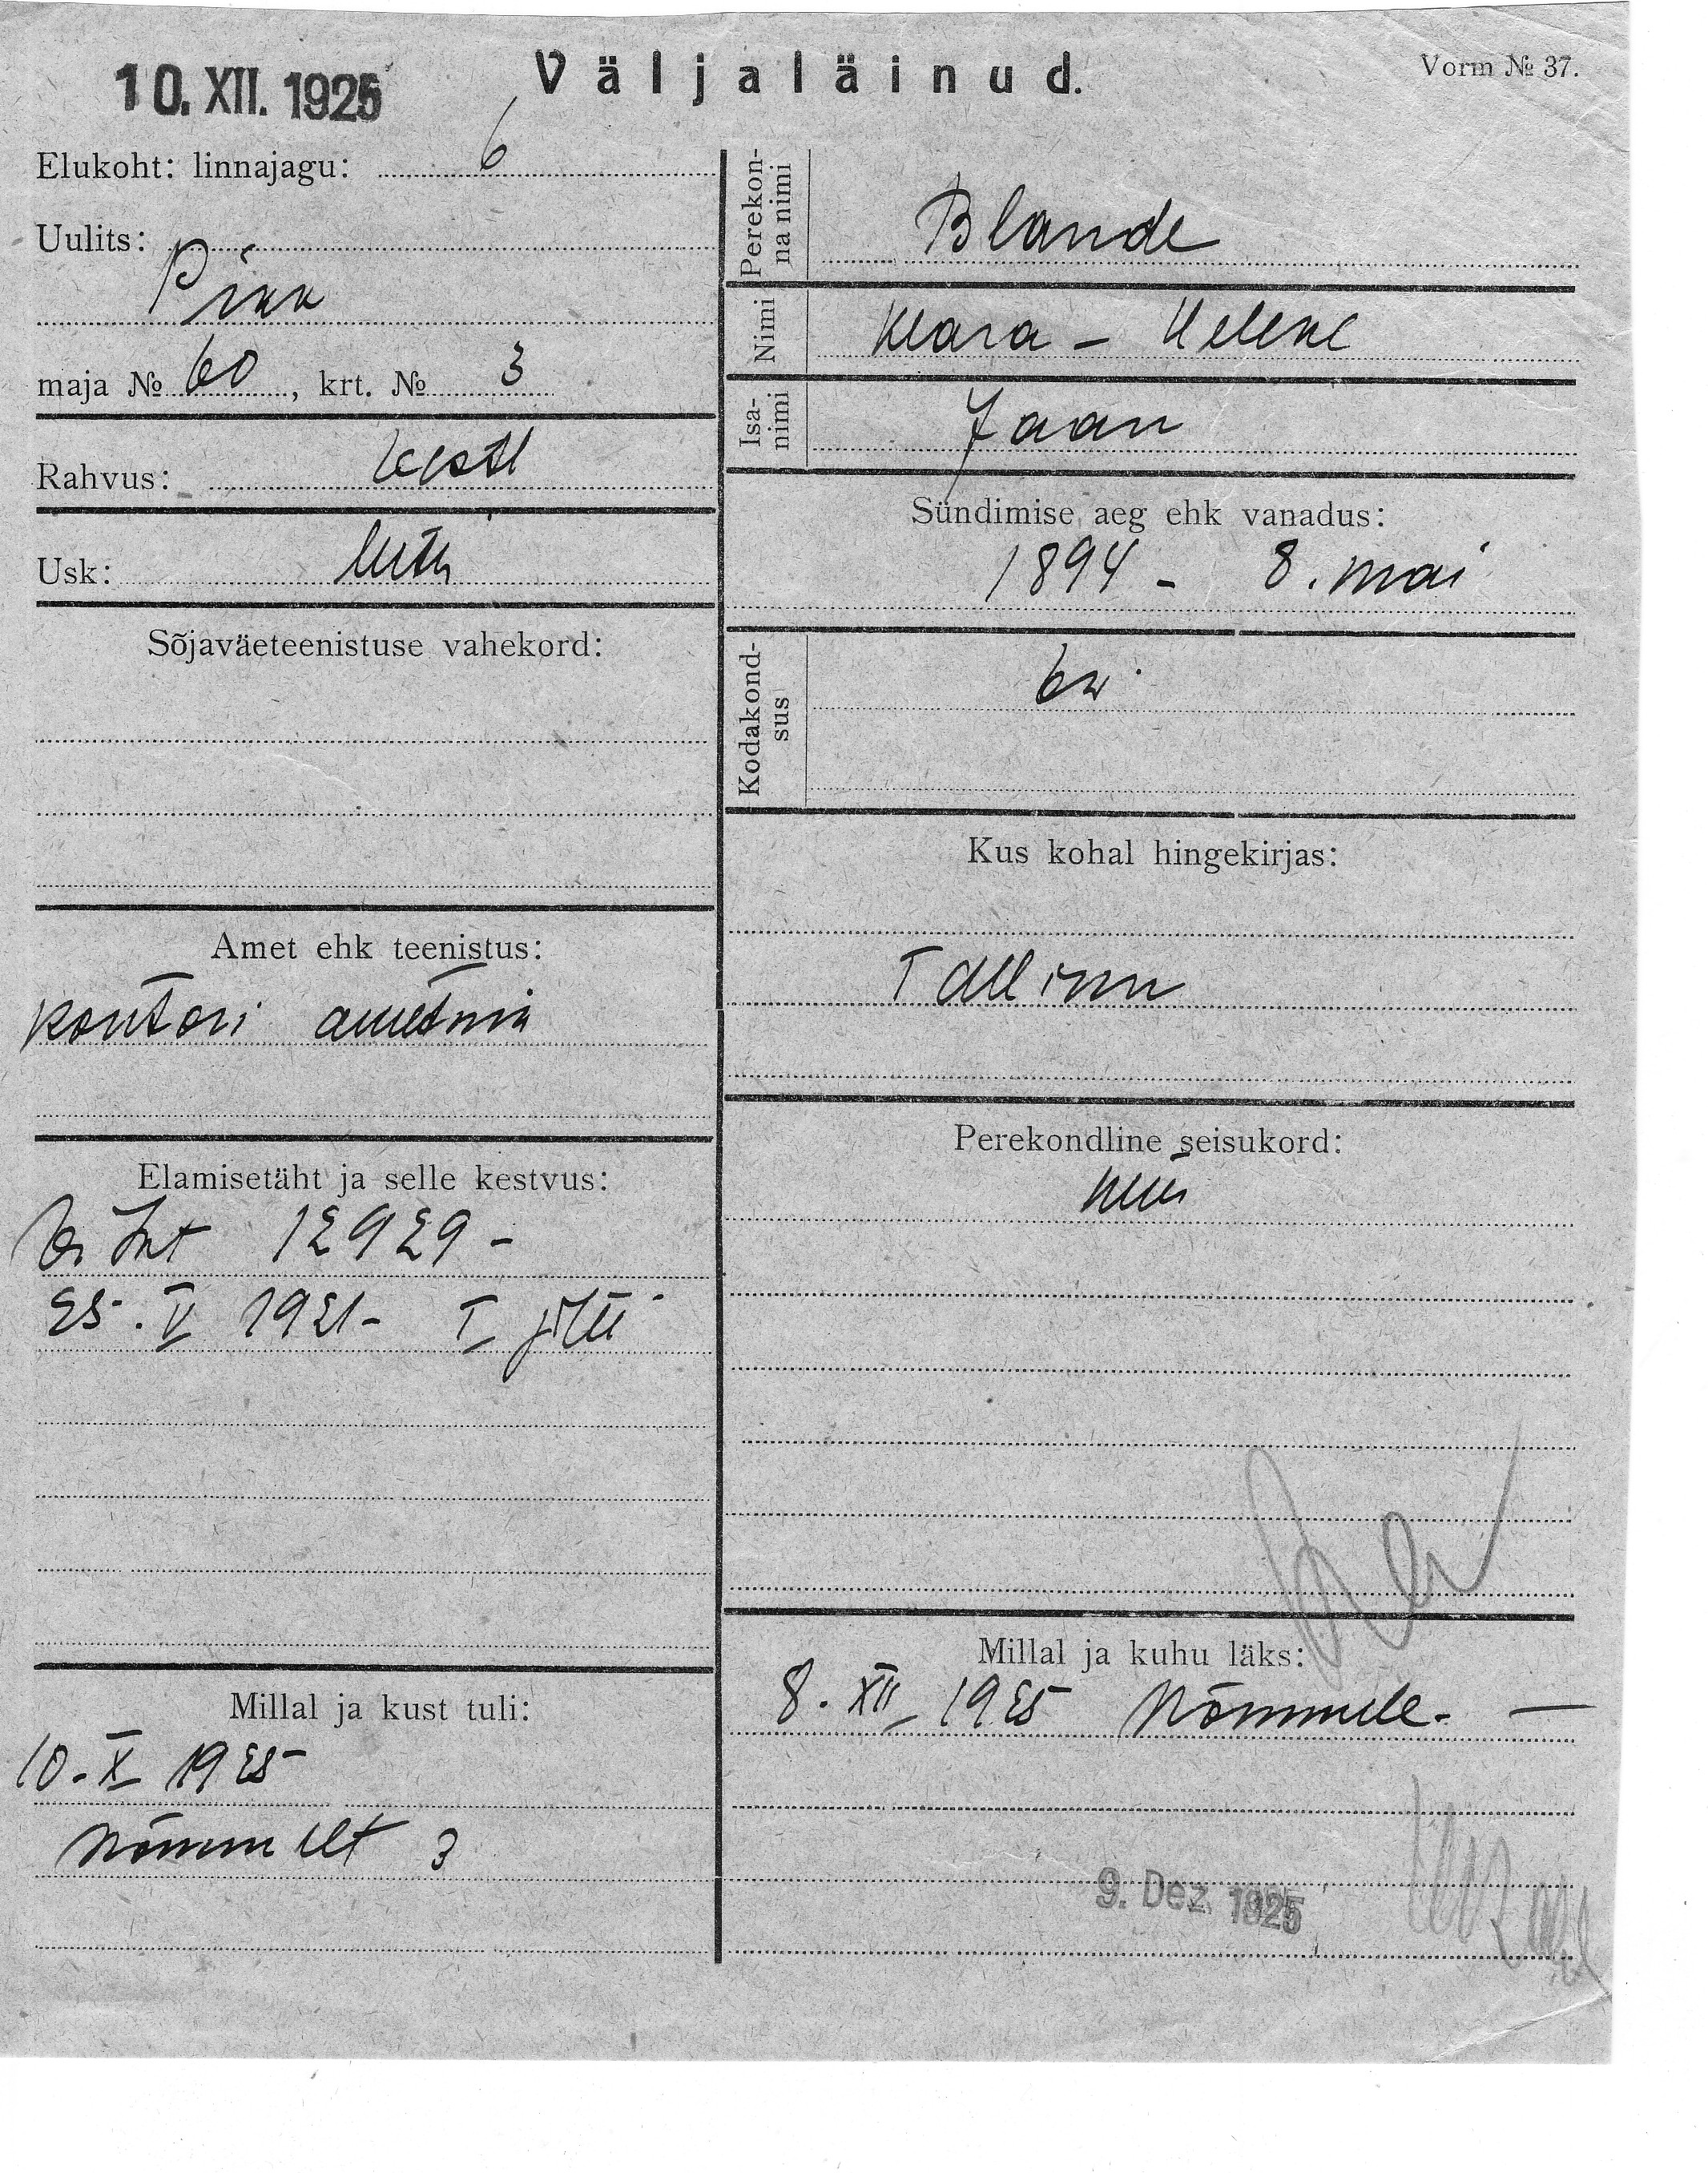 10. XII. 1925
Väljaläinud.
Vorm № 37.
Elukoht: linnajagu: 6
Uulits:
Pikk
maja № 60, krt. № 3
Rahvus: eesti
Usk: luth
Sõjaväeteenistuse vahekord:
Amet ehk teenistus:
kontori ametnik
Elamisetäht ja selle kestvus:
12929 -
25. V 1921 - I
Millal ja kust tuli:
10. X 1925
Nõmmelt 3
Perekonna nimi
Blande
Nimi
Klara - Helene
Isanimi
Jaan
Sündimise aeg ehk vanadus:
1894 - 8. mai
Kodakondsus
Kus kohal hingekirjas:
Tallinn
Perekondline seisukord:
Millal ja kuhu läks:
8. XII 1925 Nõmmele. —
9. Dez. 1925